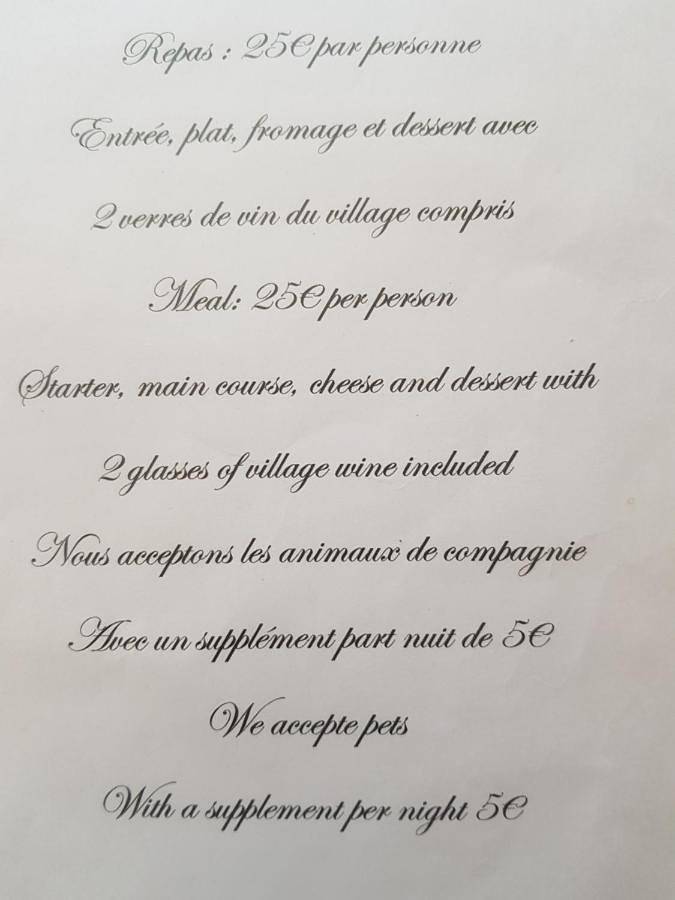 Repas : 25€ par personne
Entrée, plat, fromage et dessert avec
2 verres de vin du village compris
Meal: 25€ per person
Starter, main course, cheese and dessert with
2 glasses of village wine included
Nous acceptons les animaux de compagnie
Avec un supplément part nuit de 5€
We accepte pets
With a supplement per night 5€